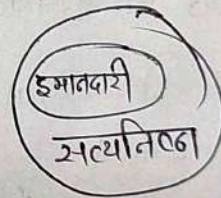 इमानदारी
सत्यनिष्ठा